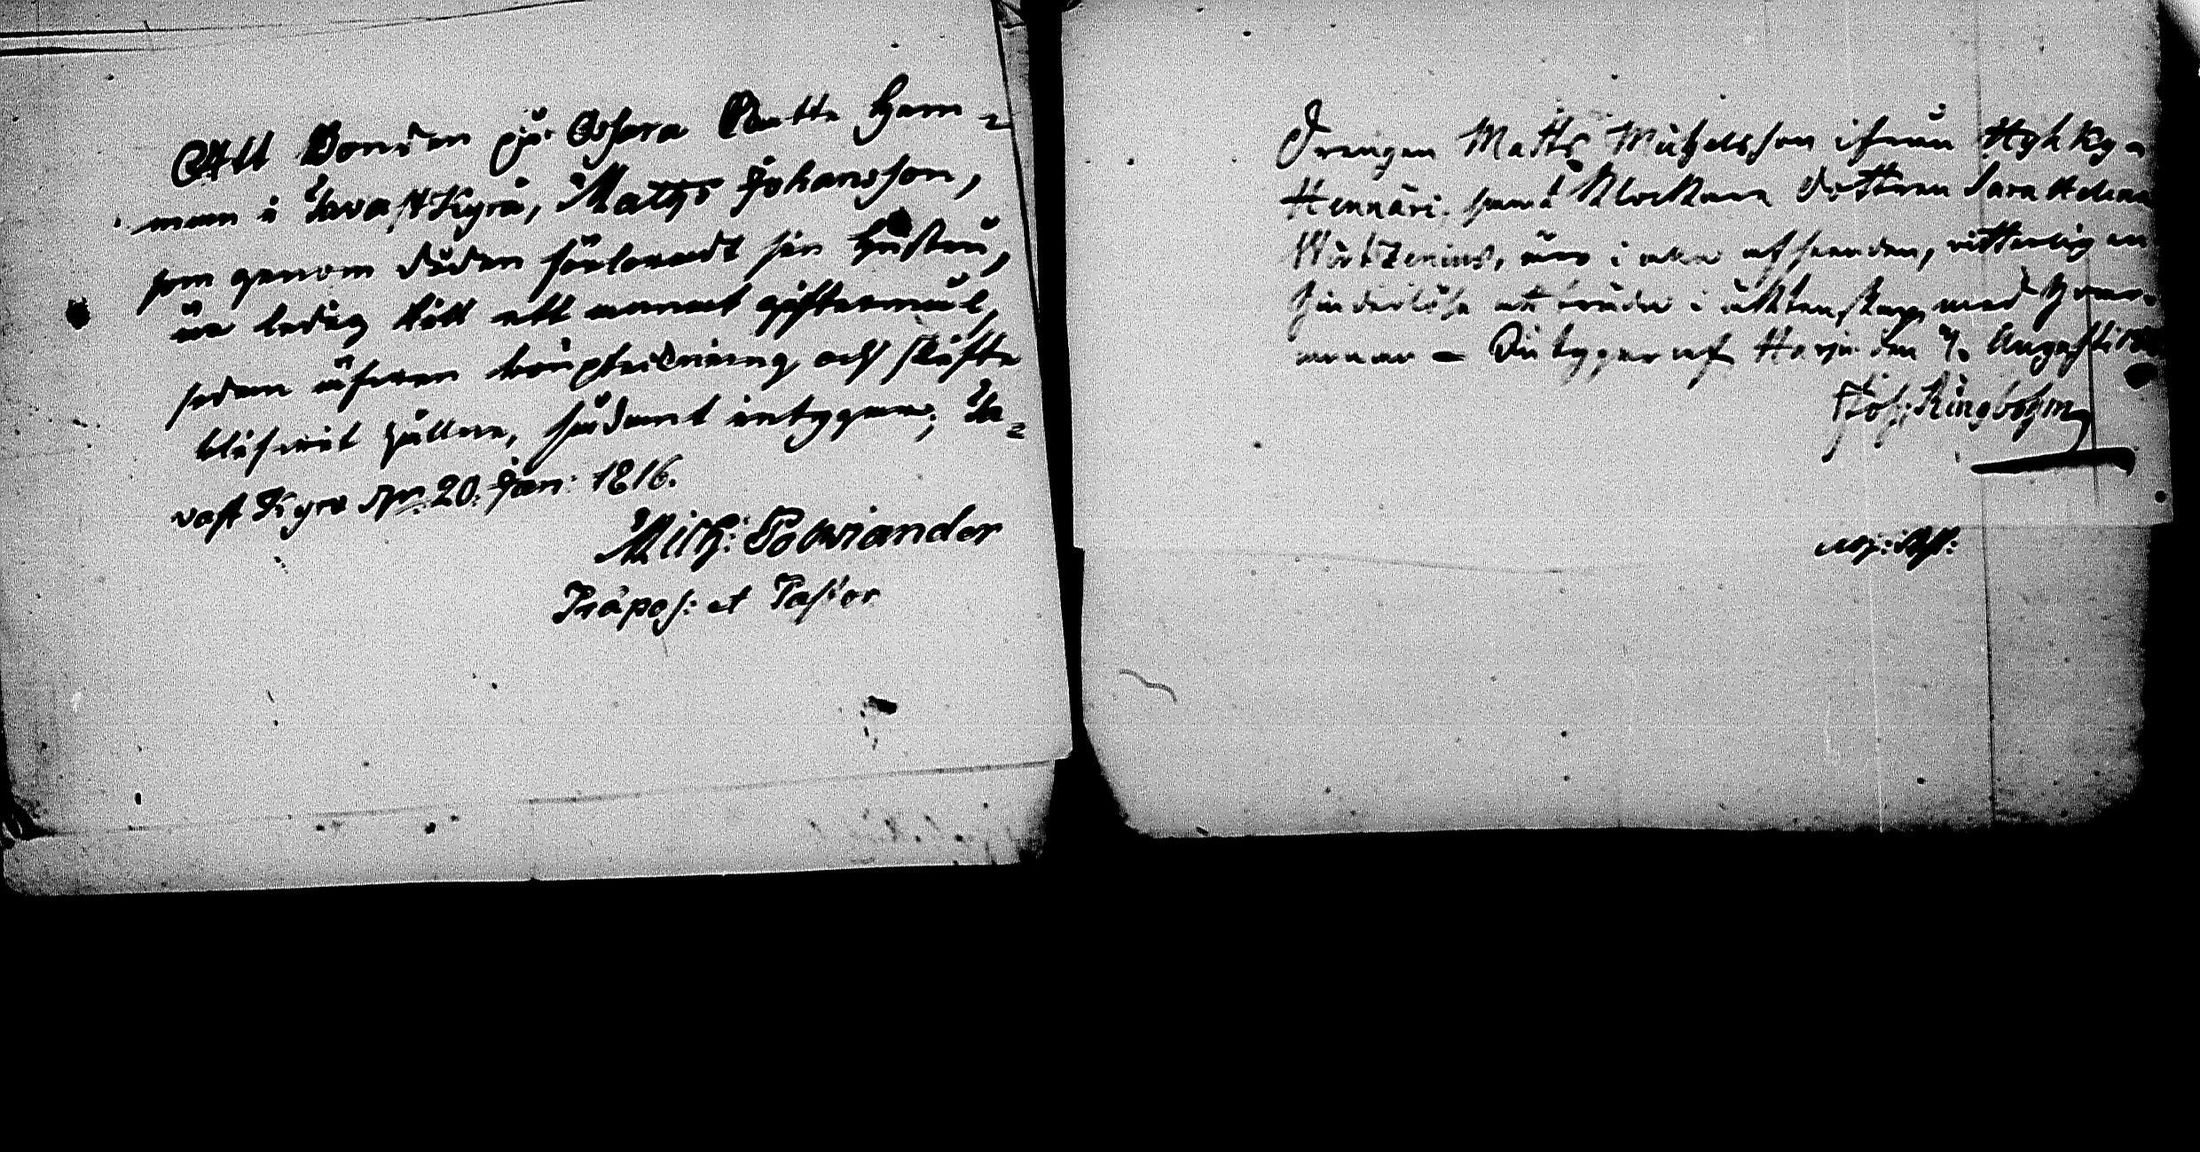 Att Bonden på Ahara Rautte Hem¬
man i TavastKyrå, Matts Johansson,
som genom döden förloradt sin Hustru,
är ledig till ett annat giftermål,
sedan äfven bouptekning och skifte
blifwit hållne, sådant intygar; Ta¬
vastKyro d. 20. Jan: 1816.
Mich: Polviander
Præpos: et Pastor
Drengen Matts Michelsson ifrån Kyhky
Hennäri, samt Klockare dottren Sara Helena
Wirtzenius, äro i alla afseenden, vitterligen
hinderlöse att träda i äktenskap med hvar¬
annan – Intygar af Harju den Augusti
Joh: Ringbohm